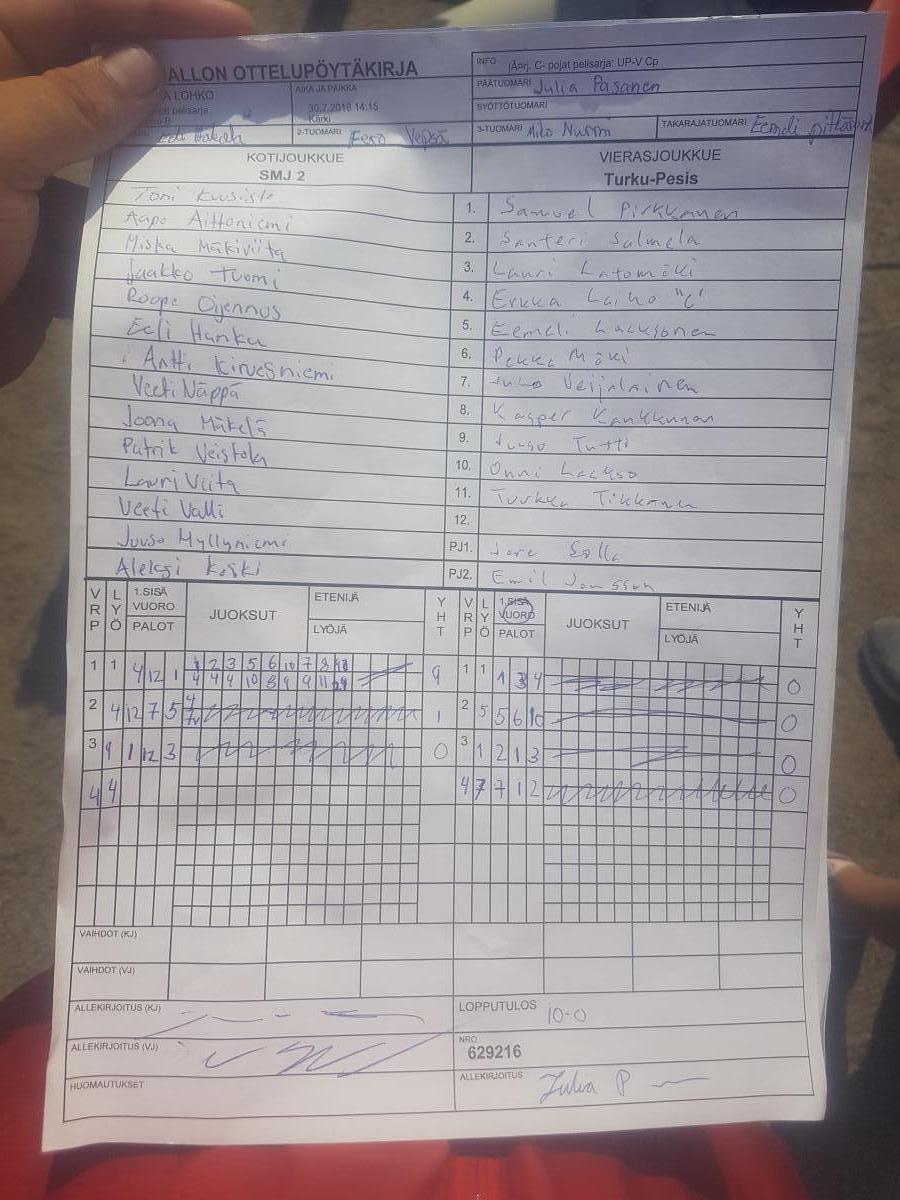 ALLON OTTELUPÖYTÄKIRJA
A LOHKO
AIKA JA PAIKKA
30.7.2018 14:15
Kärki
2-TUOMARI Eero
INFO jÄÄrj. C- pojat pelisarja: UP-V Cp
PÄÄTUOMARI Julia Pasanen
SYÖTTÖTUOMARI
3-TUOMARI Miko Nurmi
TAKARAJATUOMARI Eemeli
KOTIJOUKKUE
SMJ 2
VIERASJOUKKUE
Turku-Pesis
Toni Kuusisto
1. Samuel Pirkkanen
Aapo Aittoniemi
2. Santeri Salmela
Miska Mäkiviita
3. Lauri Latomäki
Jaakko Tuomi
4. Erkka Laiho "C"
Roope Ojennus
5. Eemeli Laaksonen
Eeli Hanka
6. Pekka Mäki
Antti Kirvesniemi
7. Juho Veijalainen
Veeti Näppä
8. Kasper Kankkunen
Joona Mäkelä
9. Juuso Tutti
Patrik Veistola
10. Onni Laakso
Lauri Viita
11. Tuukka Tikkanen
Veeti Valli
12.
Juuso Myllyniemi
PJ1. Jere
Aleksi Koski
PJ2. Emil Jansson
VRP LYÖ 1.SISÄ VUORO PALOT JUOKSUT ETENIJÄ LYÖJÄ YHT
VRP LYÖ 1.SISÄ VUORO PALOT JUOKSUT ETENIJÄ LYÖJÄ YHT
1 1 4 12 1 1 2 3 5 6 10 7 8 9
4 4 4 10 8 9 9 11
1 1 1 3 4 0
2 4 12 7 5 4 1
2 5 5 6 10 0
3 9 1 12 3 0
3 1 2 1 3 0
4 4
4 7 7 1 2 0
VAIHDOT (KJ)
VAIHDOT (VJ)
ALLEKIRJOITUS (KJ)
LOPPUTULOS 10-0
ALLEKIRJOITUS (VJ)
NRO
629216
HUOMAUTUKSET
ALLEKIRJOITUS Julia P